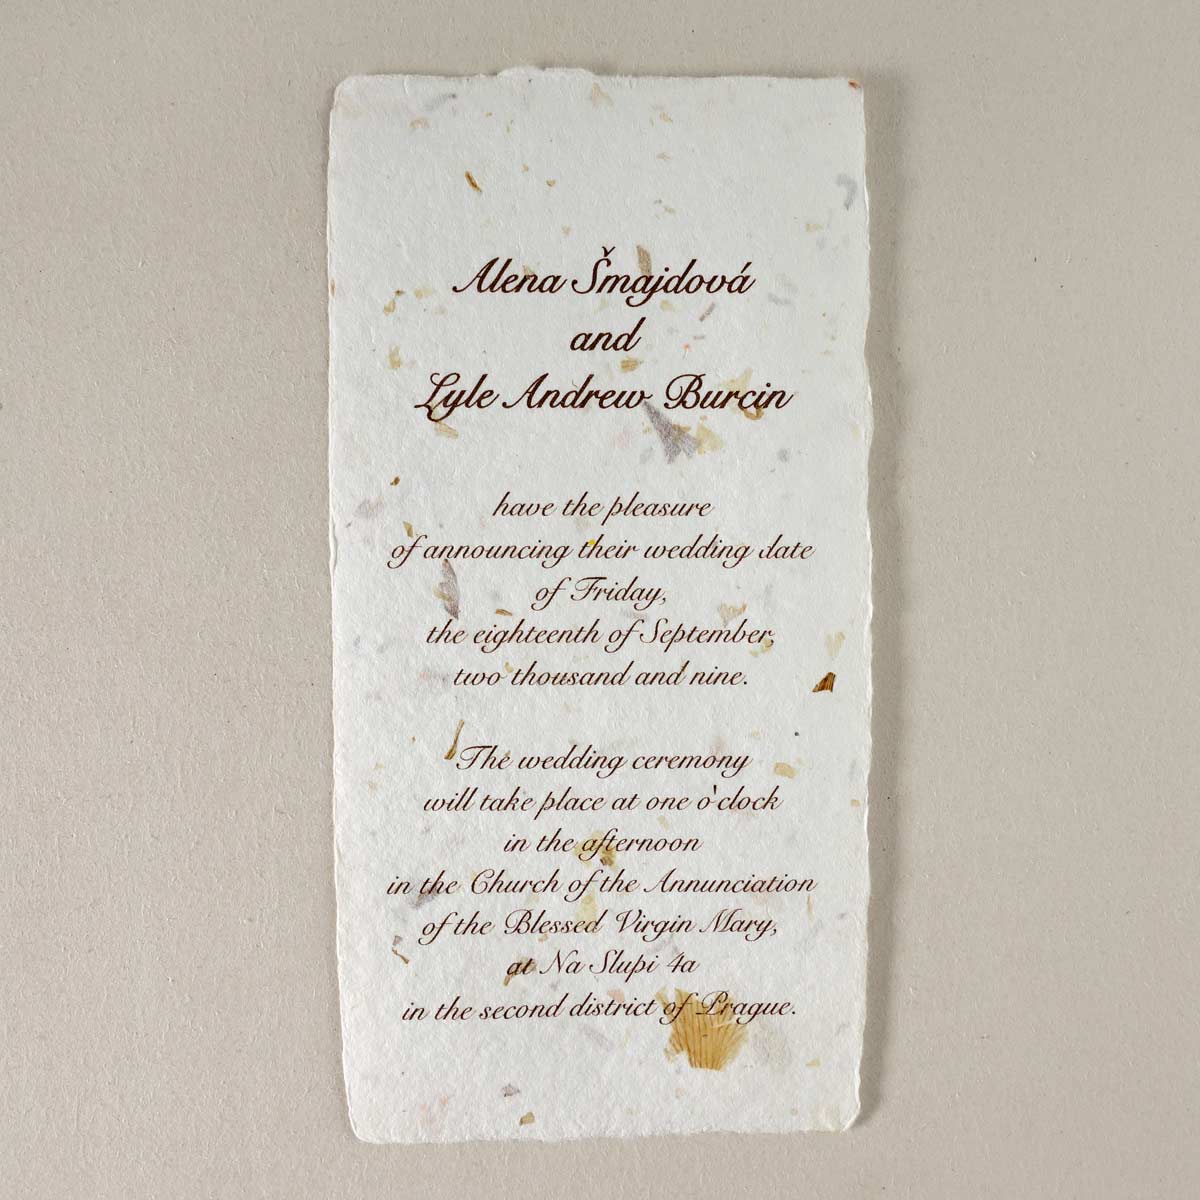 Alena Šmajdová
and
Lyle Andrew Burcin
have the pleasure
of announcing their wedding date
of Friday,
the eighteenth of September,
two thousand and nine.
The wedding ceremony
will take place at one o'clock
in the afternoon
in the Church of the Annunciation
of the Blessed Virgin Mary,
at Na Slupi 4a
in the second district of Prague.